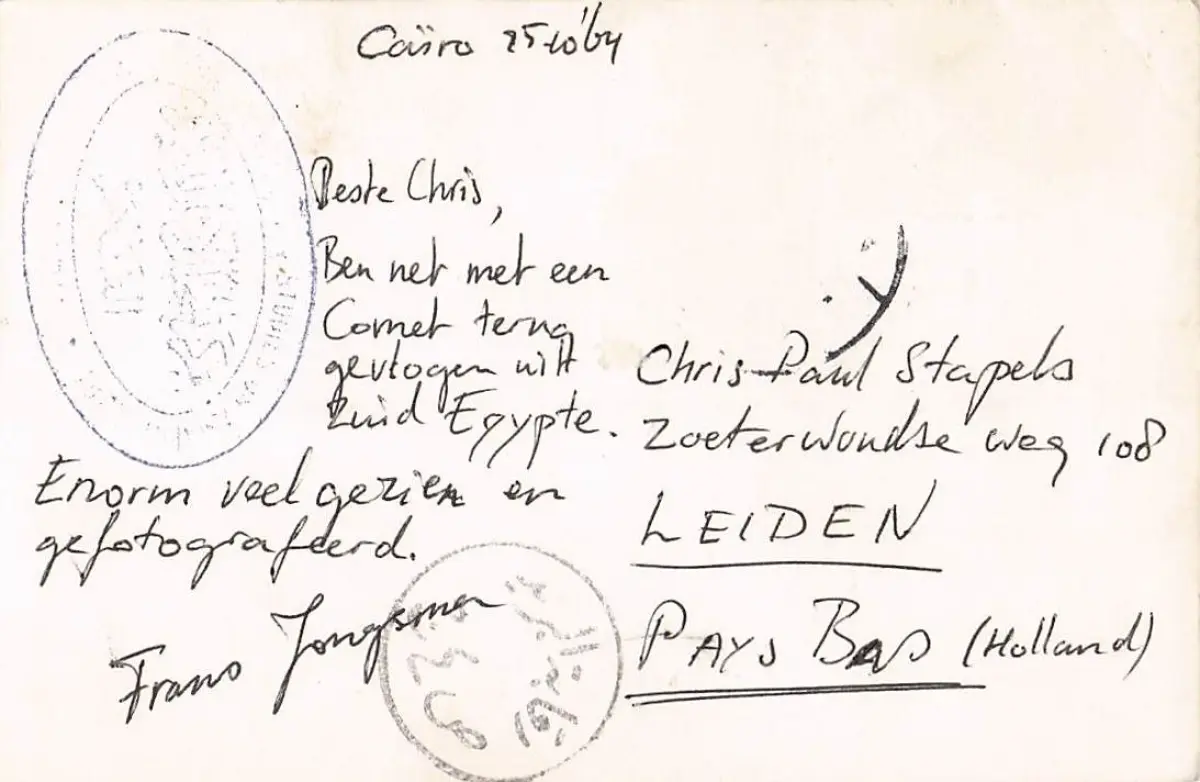 Caïro 25-10'64
Beste Chris,
Ben net met een
Comet terug
gevlogen uit
Zuid Egypte.
Enorm veel gezien en
gefotografeerd.
Frans Jongsma
Chris Paul Stapels
Zoeterwoudse weg 108
LEIDEN
PAYS BAS (Holland)